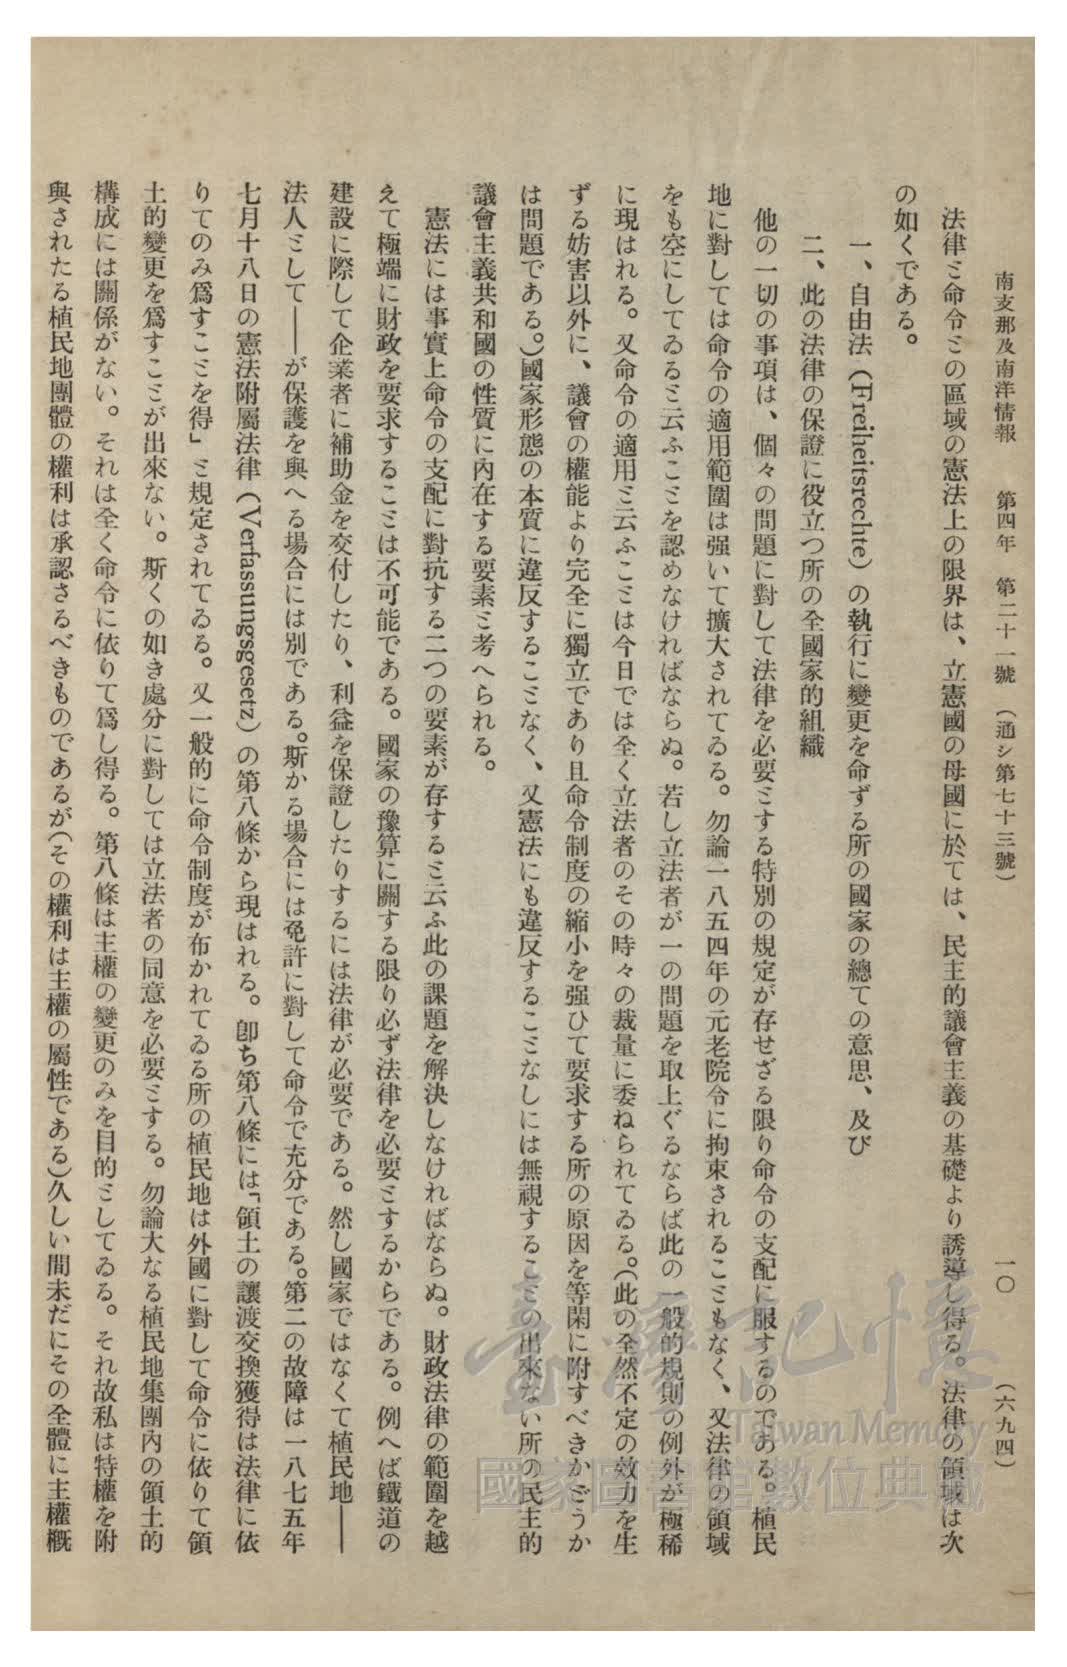 南支那及南洋情報　第四年　第二十一號　（通シ第七十三號）　一〇　（六九四）
法律ミ命令ミの區域の憲法上の限界は、立憲國の母國に於ては、民主的議會主義の基礎より誘導し得る。法律の領域は次
の如くである。
一、自由法（Freiheitsrechte）の執行に變更を命ずる所の國家の總ての意思、及び
二、此の法律の保證に役立つ所の全國家的組織
他の一切の事項は、個々の問題に對して法律を必要ミする特別の規定が存せざる限り命令の支配に服するのである。植民
地に對しては命令の適用範圍は强いて擴大されてゐる。勿論一八五四年の元老院令に拘束されるこミもなく、又法律の領域
をも空にしてゐるミ云ふこミを認めなければならぬ。若し立法者が一の問題を取上ぐるならば此の一般的規則の例外が極稀
に現はれる。又命令の適用ミ云ふこミは今日では全く立法者のその時々の裁量に委ねられてゐる。（此の全然不定の效力を生
ずる妨害以外に、議會の權能より完全に獨立であり且命令制度の縮小を强ひて要求する所の原因を等閑に附すべきかどうか
は問題である。）國家形態の本質に違反するこミなく、又憲法にも違反するこミなしには無視するこミの出來ない所の民主的
議會主義共和國の性質に內在する要素ミ考へられる。
憲法には事實上命令の支配に對抗する二つの要素が存するミ云ふ此の課題を解決しなければならぬ。財政法律の範圍を越
えて極端に財政を要求するこミは不可能である。國家の豫算に關する限り必ず法律を必要ミするからである。例へば鐵道の
建設に際して企業者に補助金を交付したり、利益を保證したりするには法律が必要である。然し國家ではなくて植民地――
法人ミして――が保護を與へる場合には別である。斯かる場合には免許に對して命令で充分である。第二の故障は一八七五年
七月十八日の憲法附屬法律（Verfassungsgesetz）の第八條から現はれる。卽ち第八條には「領土の讓渡交換獲得は法律に依
りてのみ爲すこミを得」ミ規定されてゐる。又一般的に命令制度が布かれてゐる所の植民地は外國に對して命令に依りて領
土的變更を爲すこミが出來ない。斯くの如き處分に對しては立法者の同意を必要ミする。勿論大なる植民地集團內の領土的
構成には關係がない。それは全く命令に依りて爲し得る。第八條は主權の變更のみを目的ミしてゐる。それ故私は特權を附
與されたる植民地團體の權利は承認さるべきものであるが（その權利は主權の屬性である）久しい間未だにその全體に主權槪
臺灣記憶
Taiwan Memory
國家圖書館數位典藏